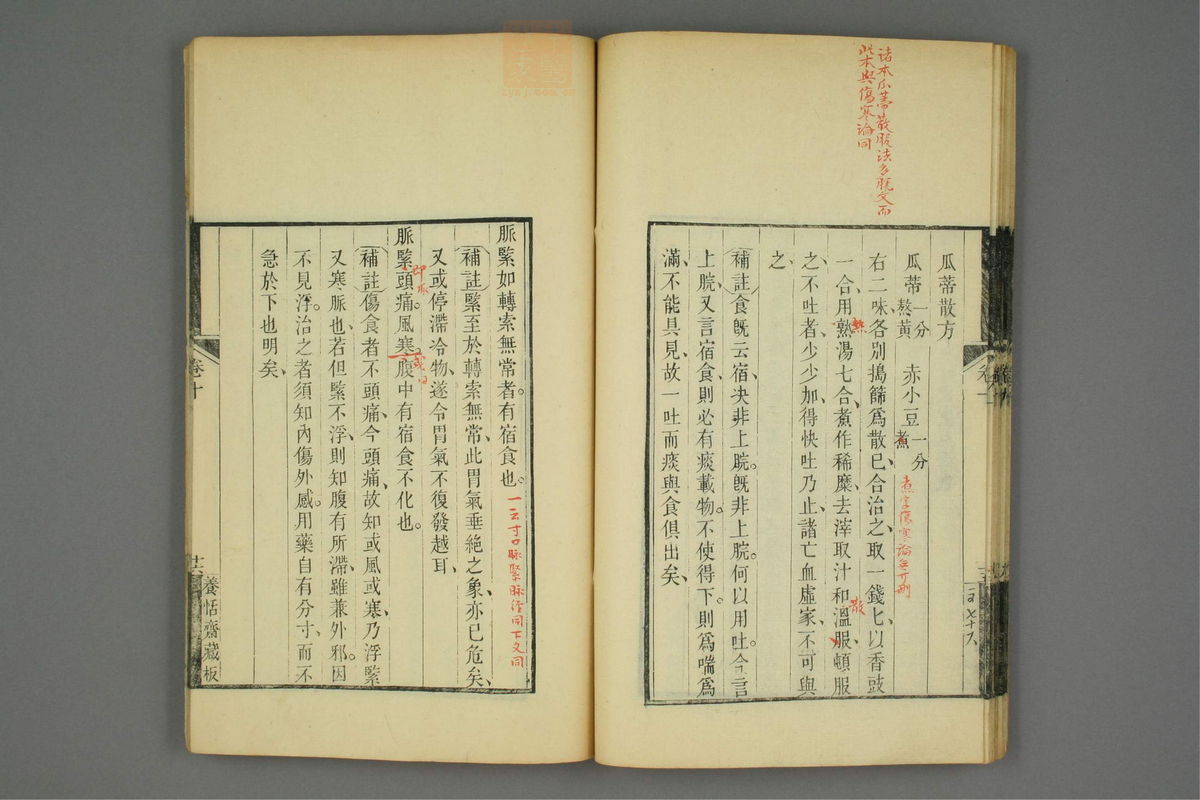 諸本瓜蒂散服法多脫文而
此本與傷寒論同
瓜蒂散方
瓜蒂一分熬黃　赤小豆一分煮
煮字傷寒論無可刪
右二味各別搗篩爲散已合治之取一錢匕以香豉
一合用熟湯七合煮作稀糜去滓取汁和溫服頓服
熱
散
之不吐者少少加得快吐乃止諸亡血虛家不可與
之
補註食旣云宿決非上脘旣非上脘何以用吐今言
上脘又言宿食則必有痰載物不使得下則爲喘爲
滿不能具見故一吐而痰與食俱出矣
脈緊如轉索無常者有宿食也
一云寸口脈緊脈經同下文同
補註緊至於轉索無常此胃氣垂絕之象亦已危矣
又或停滯冷物遂令胃氣不復發越耳
脈緊頭痛風寒腹中有宿食不化也
補註傷食者不頭痛今頭痛故知或風或寒乃浮緊
又寒脈也若但緊不浮則知腹有所滯雖兼外邪因
不見浮治之者須知內傷外感用藥自有分寸而不
急於下也明矣
卷十
養恬齋藏板